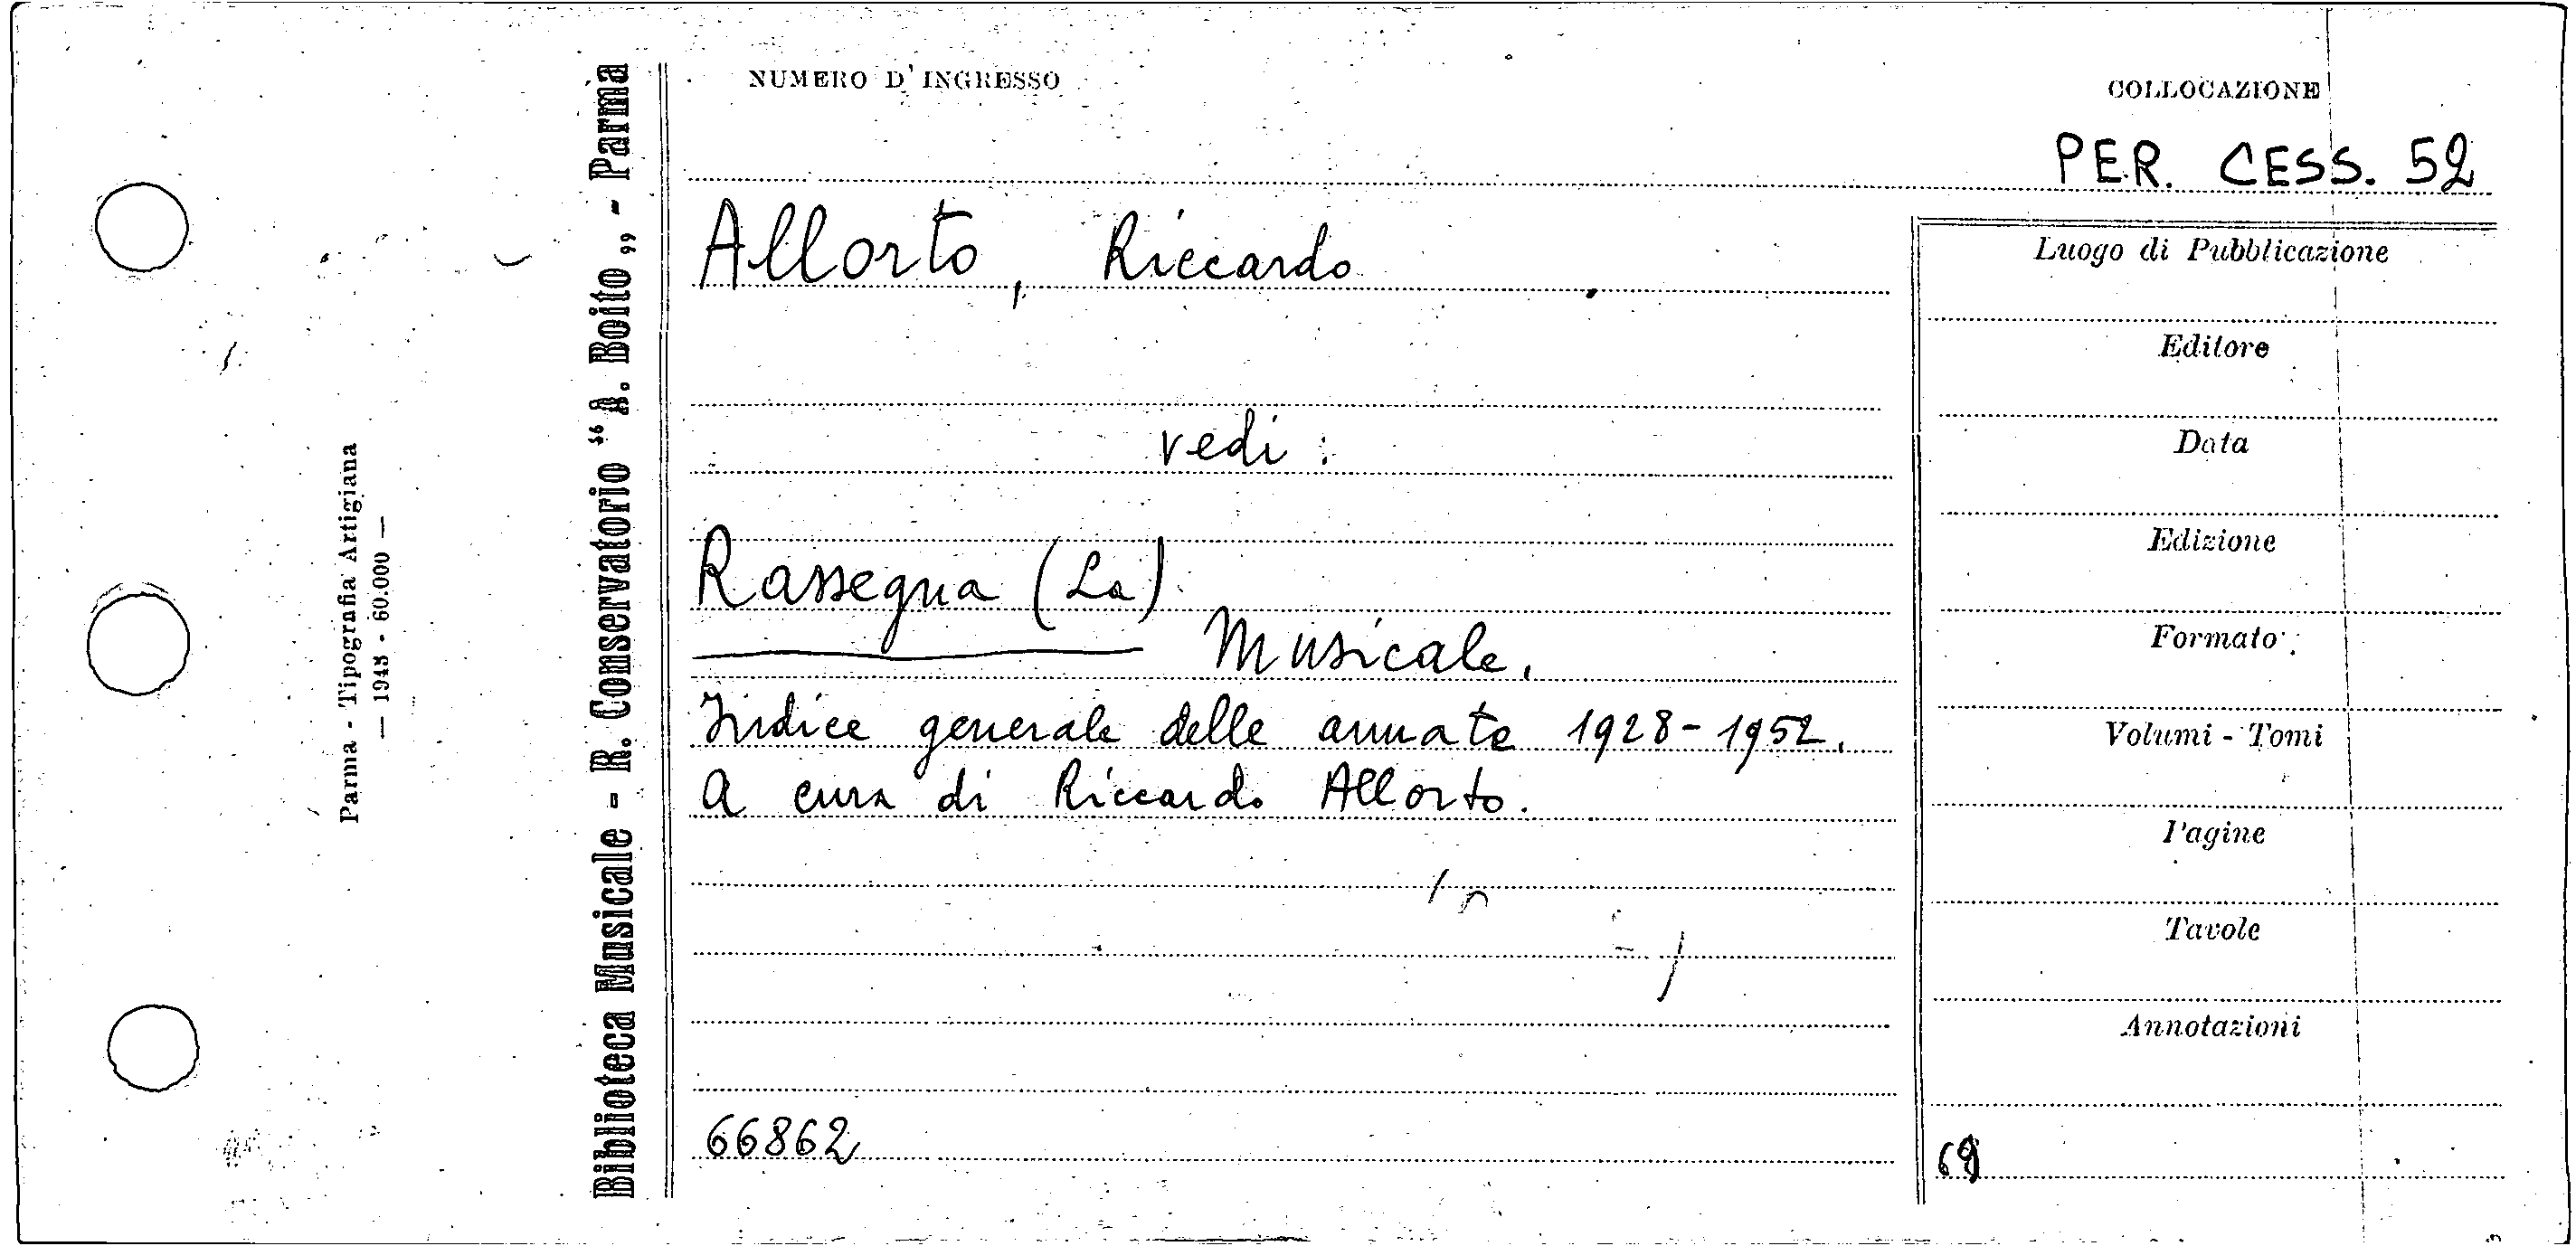 NUMERO D'INGRESSO
COLLOCAZIONE
PER. CESS. 52
Allorto, Riccardo
vedi:
Rassegna (La)
Musicale.
Indice generale delle annate 1928-1952.
A cura di Riccardo Allorto.
66862
Luogo di Pubblicazione
Editore
Data
Edizione
Formato
Volumi - Tomi
Pagine
Tavole
Annotazioni
Biblioteca Musicale - R. Conservatorio "A. Boito„ - Parma
Parma - Tipografia Artigiana
— 1943 - 60.000 —